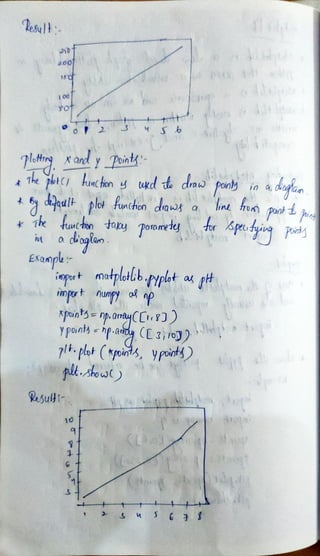 Result:-
250
200
150
100
50
0 1 2 3 4 5 6
Plotting x and y points:-
* The plot() function is used to draw points in a diagram
* By default plot function draws a line from point to point
* The function takes parameters for specifying points
in a diagram.
Example:-
import matplotlib.pyplot as plt
import numpy as np
xpoints = np.array([1,8])
ypoints = np.array([3,10])
plt.plot (xpoints, ypoints)
plt.show()
Result:-
10
9
8
7
6
5
4
3
1 2 3 4 5 6 7 8